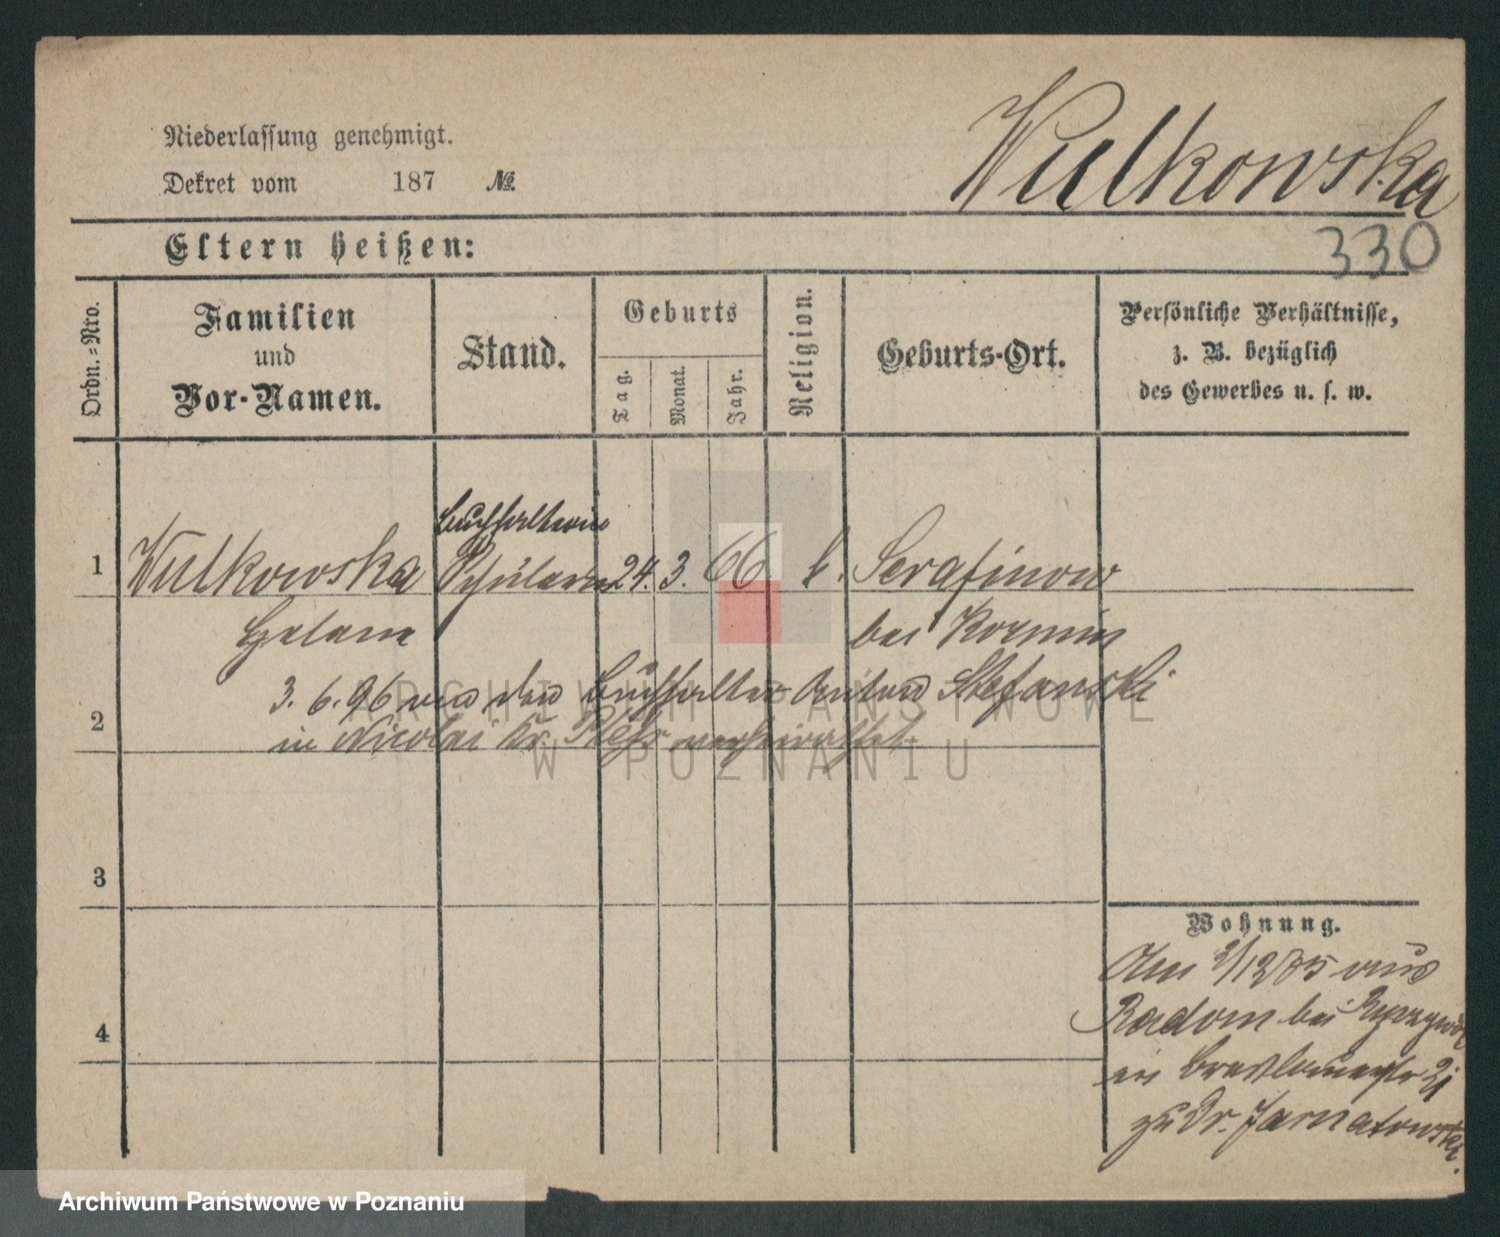 Niederlassung genehmigt.
Dekret vom 187 №
Wulkowska
330
Eltern heißen:
Ordn.-Nro.
Familien
und
Vor-Namen.
Stand.
Geburts
Tag.
Monat.
Jahr.
Religion.
Geburts-Ort.
Persönliche Verhältnisse,
z. B. bezüglich
des Gewerbes u. s. w.
Buchhalterin
1 Wulkowska Schülerin 24. 3. 66 k. Serafinow
Helene bei Kozmin
3. 6. 96 mit dem Buchhalter Anton Stefanski
2
in Nicolai Kr. Pleß verheirathet
3
4
Wohnung.
Am 2/12 85 aus
Radom bei
in Breslauerstr 21
zu Dr. Jarnatowski.
ARCHIWUM PAŃSTWOWE
W POZNANIU
Archiwum Państwowe w Poznaniu